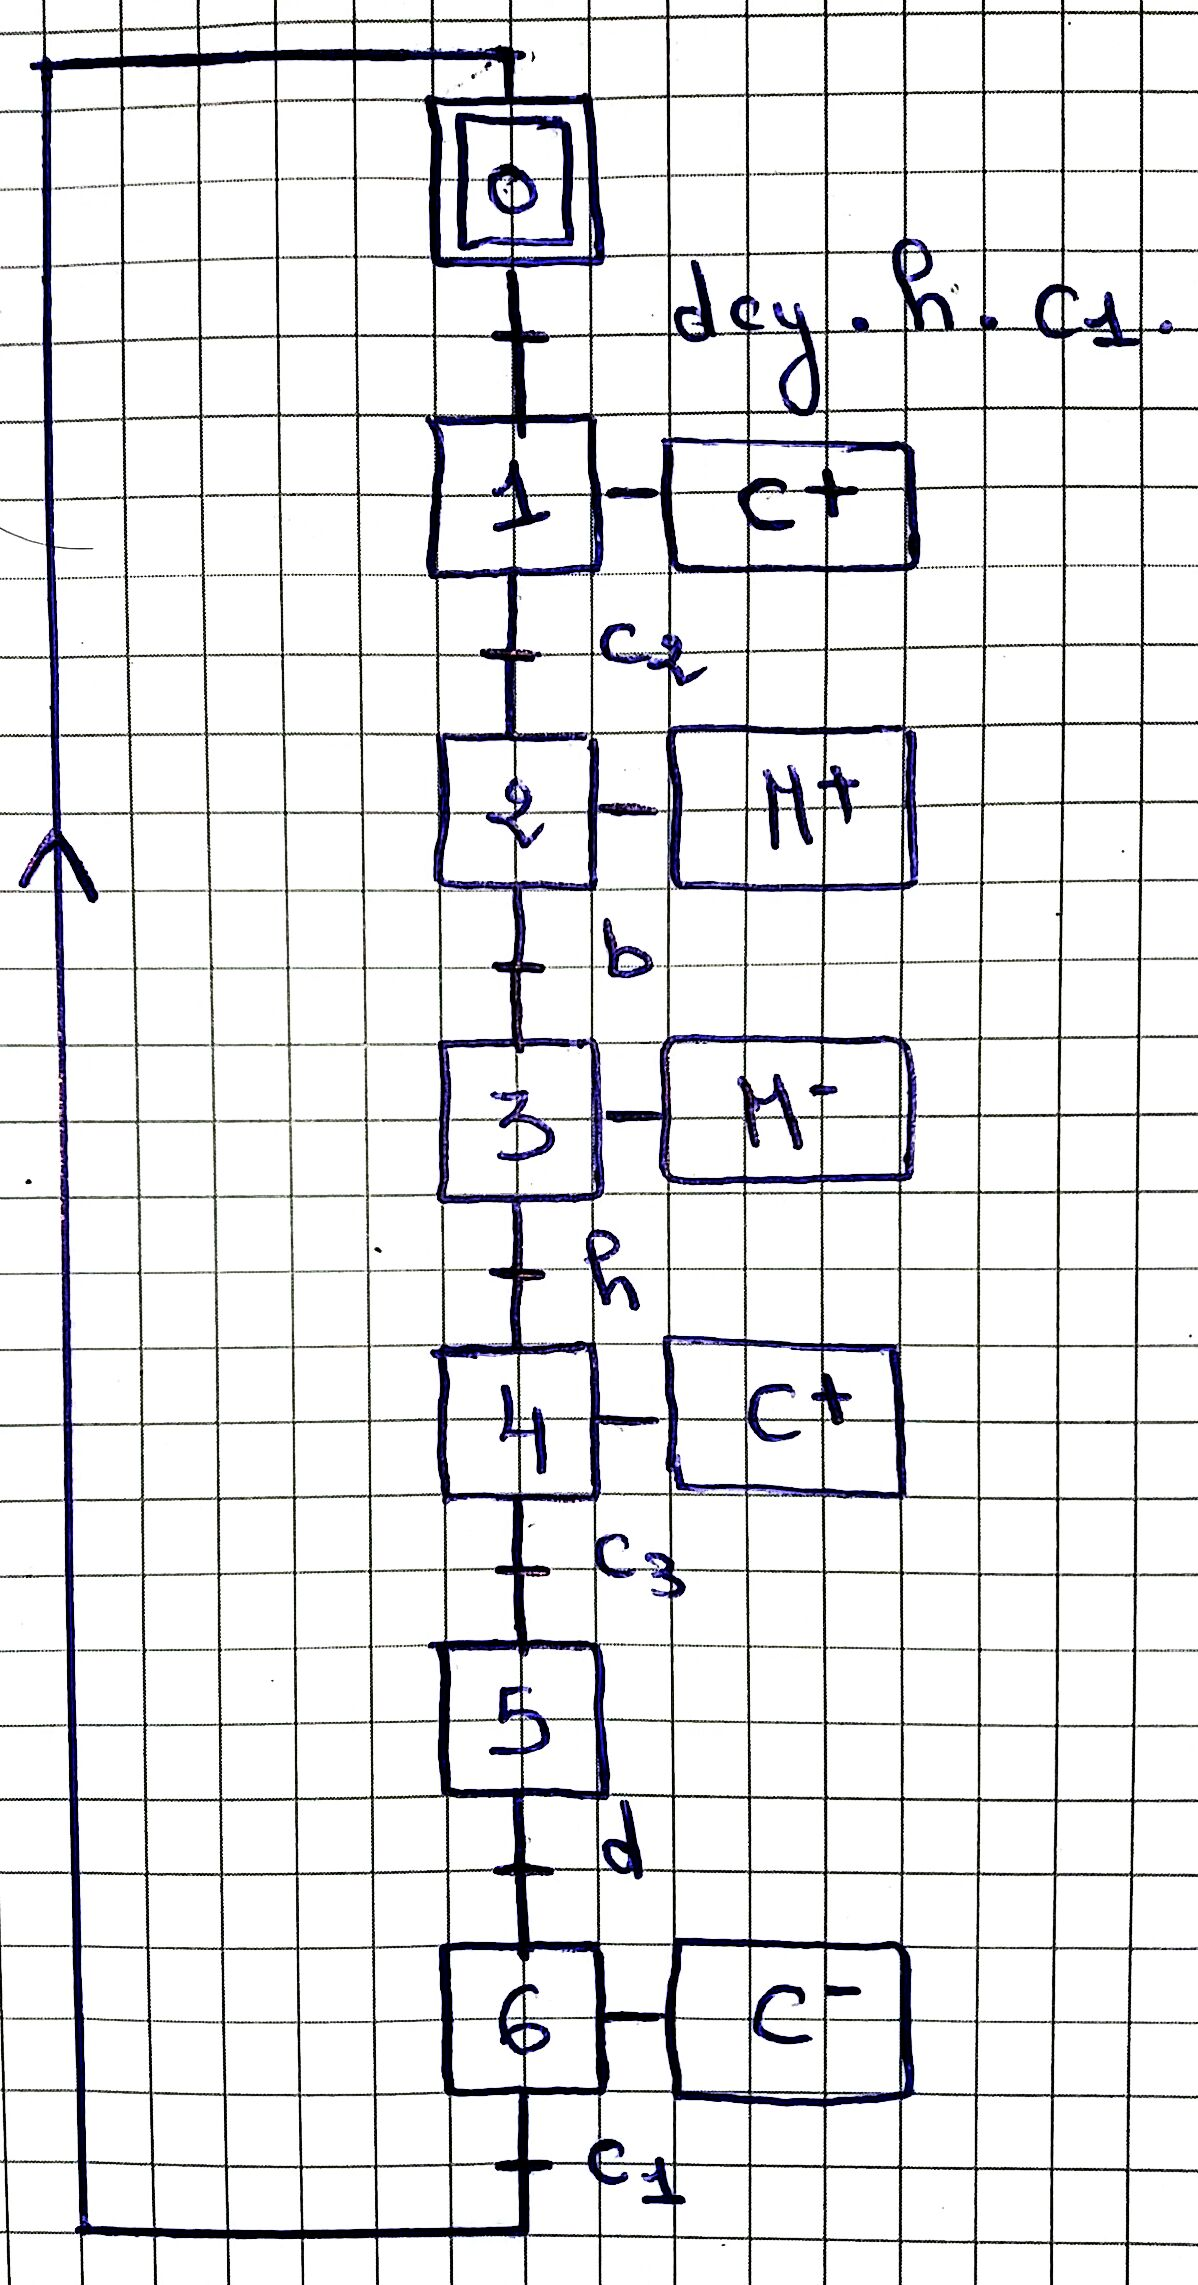 0
dcy . h . c1 .
1 C+
c2
2 M+
b
3 M-
h
4 C+
c3
5
d
6 C-
c1